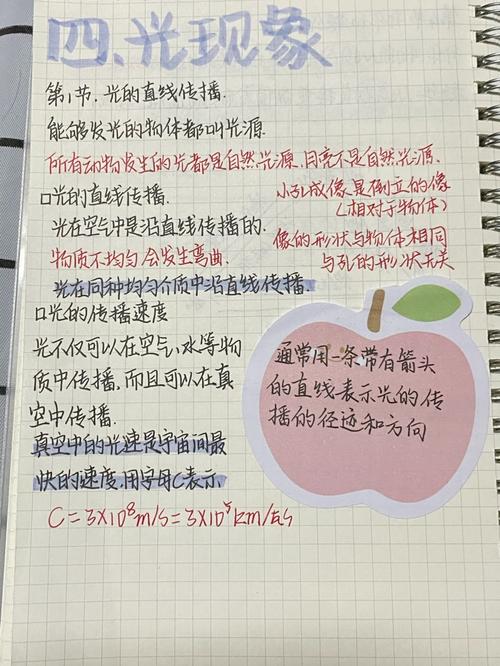 四、光现象
第1节、光的直线传播.
能够发光的物体都叫光源.
所有动物发生的光都是自然光源、月亮不是自然光源.
口光的直线传播.
小孔成像是倒立的像
(相对于物体)
光在空气中是沿直线传播的.
像的形状与物体相同
物质不均匀会发生弯曲.
与孔的形状无关
光在同种均匀介质中沿直线传播.
口光的传播速度
光不仅可以在空气、水等物
质中传播,而且可以在真
空中传播.
真空中的光速是宇宙间最
快的速度,用字母C表示.
C=3×10⁸m/s=3×10⁵km/s
通常用一条带有箭头
的直线表示光的传
播的径迹和方向